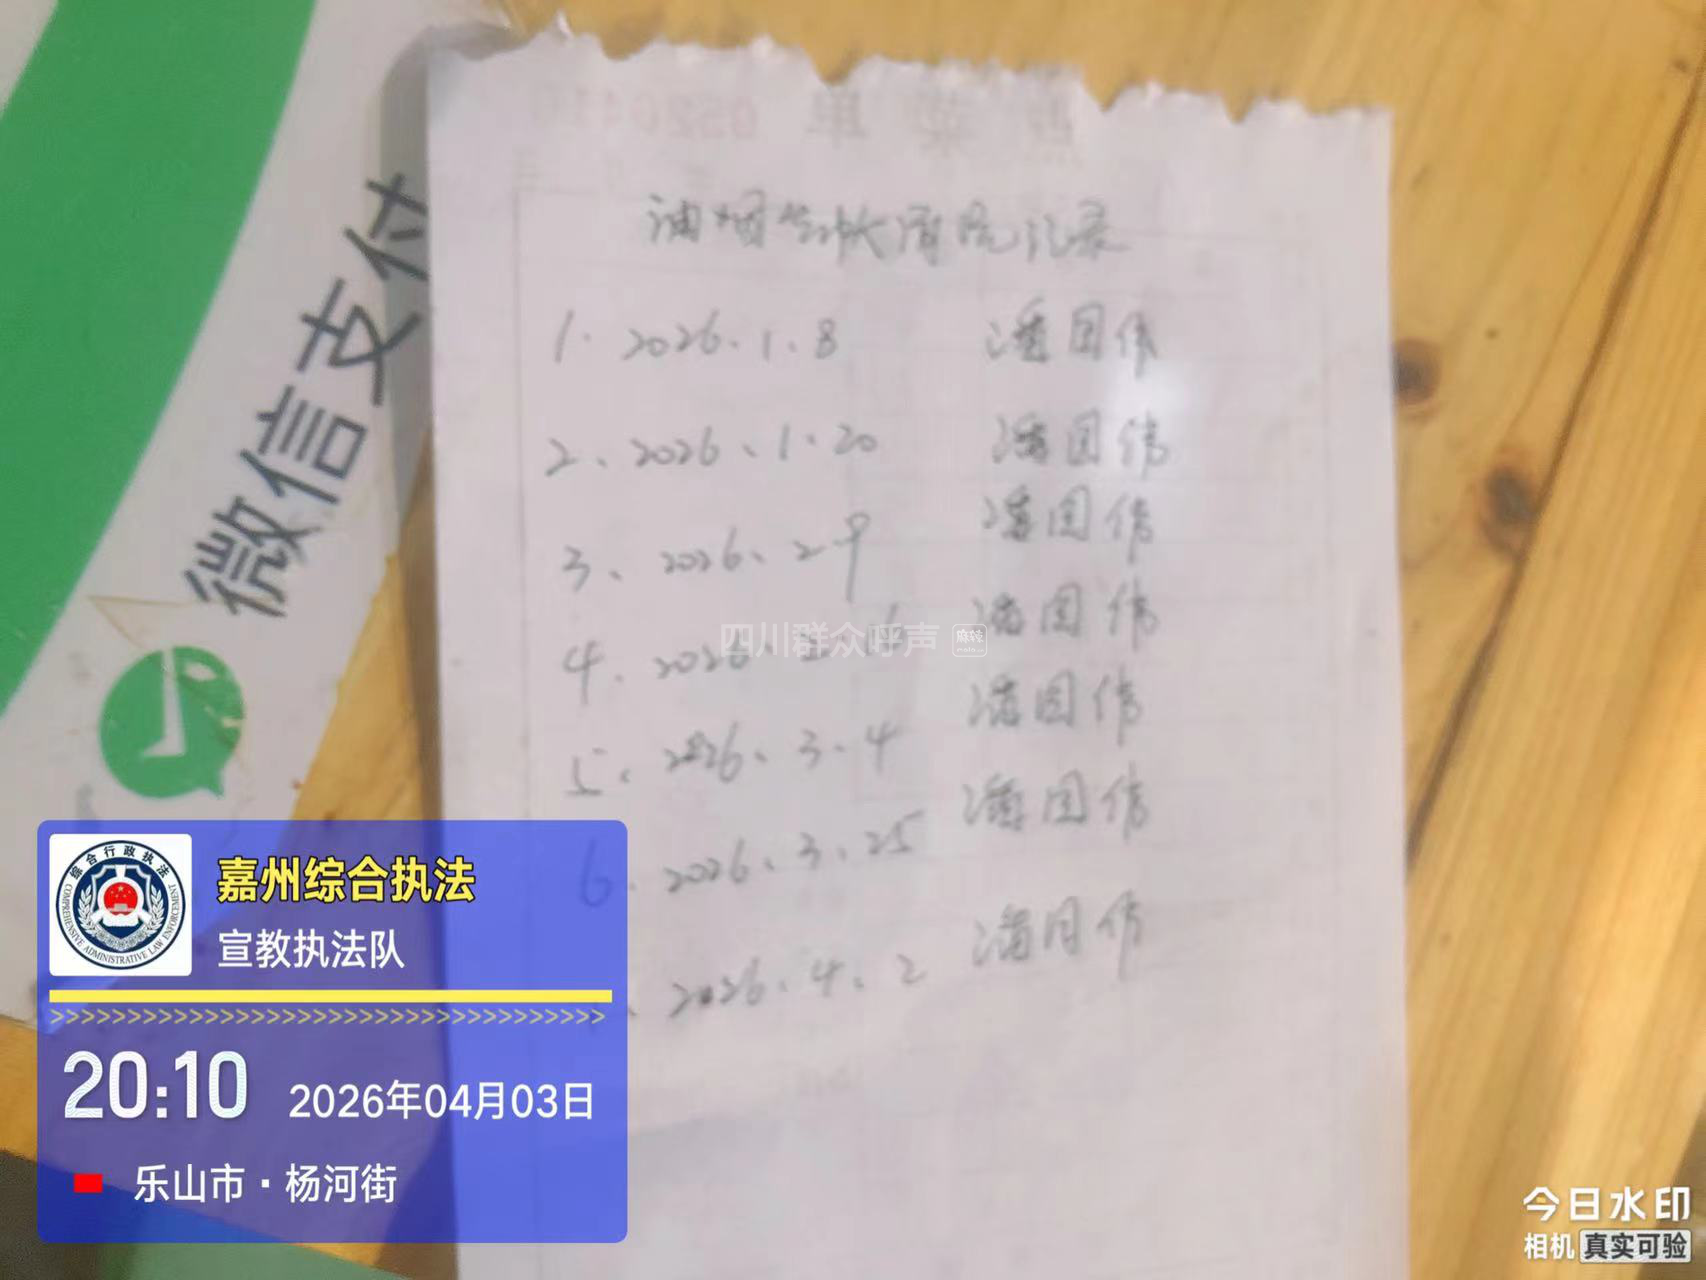 微信支付
油烟机清洗记录
1. 2026.1.8 潘国伟
2、2026、1.20 潘国伟
3、2026、2 9 潘国伟
4. 2026 2 潘国伟
5、2026、3.4 潘国伟
6. 2026、3.25 潘国伟
2026.4.2 潘国伟
四川群众呼声 麻辣
综合行政执法
COMPREHENSIVE ADMINISTRATIVE LAW ENFORCEMENT
嘉州综合执法
宣教执法队
20:10 2026年04月03日
乐山市·杨河街
今日水印
相机 真实可验